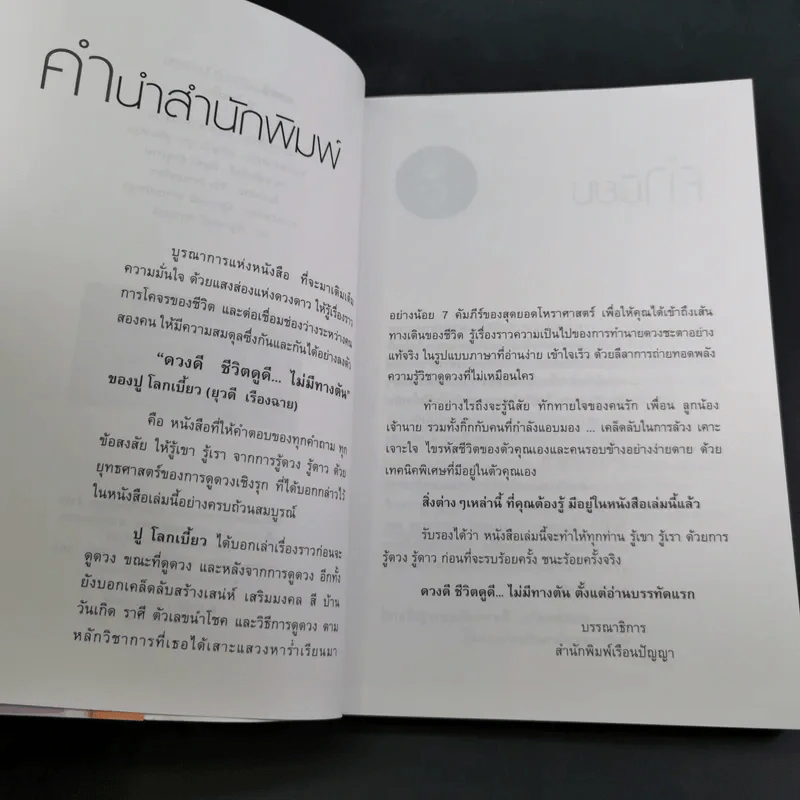 คำนำสำนักพิมพ์
บูรณาการแห่งหนังสือ ที่จะมาเติมเต็ม
ความมั่นใจ ด้วยแสงส่องแห่งดวงดาว ให้รู้เรื่องราว
การโคจรของชีวิต และต่อเชื่อมช่องว่างระหว่างคน
สองคน ให้มีความสมดุลซึ่งกันและกันได้อย่างลงตัว
“ดวงดี ชีวิตดูดี... ไม่มีทางตัน”
ของปู โลกเบี้ยว (ยุวดี เรืองฉาย)
คือ หนังสือที่ให้คำตอบของทุกคำถาม ทุก
ข้อสงสัย ให้รู้เขา รู้เรา จากการรู้ดวง รู้ดาว ด้วย
ยุทธศาสตร์ของการดูดวงเชิงรุก ที่ได้บอกกล่าวไว้
ในหนังสือเล่มนี้อย่างครบถ้วนสมบูรณ์
ปู โลกเบี้ยว ได้บอกเล่าเรื่องราวก่อนจะ
ดูดวง ขณะที่ดูดวง และหลังจากการดูดวง อีกทั้ง
ยังบอกเคล็ดลับสร้างเสน่ห์ เสริมมงคล สี บ้าน
วันเกิด ราศี ตัวเลขนำโชค และวิธีการดูดวง ตาม
หลักวิชาการที่เธอได้เสาะแสวงหาร่ำเรียนมา
อย่างน้อย 7 คัมภีร์ของสุดยอดโหราศาสตร์ เพื่อให้คุณได้เข้าถึงเส้น
ทางเดินของชีวิต รู้เรื่องราวความเป็นไปของการทำนายดวงชะตาอย่าง
แท้จริง ในรูปแบบภาษาที่อ่านง่าย เข้าใจเร็ว ด้วยลีลาการถ่ายทอดพลัง
ความรู้วิชาดูดวงที่ไม่เหมือนใคร
ทำอย่างไรถึงจะรู้นิสัย ทักทายใจของคนรัก เพื่อน ลูกน้อง
เจ้านาย รวมทั้งกิ๊กกับคนที่กำลังแอบมอง ... เคล็ดลับในการล้วง เคาะ
เจาะใจ ไขรหัสชีวิตของตัวคุณเองและคนรอบข้างอย่างง่ายดาย ด้วย
เทคนิคพิเศษที่มีอยู่ในตัวคุณเอง
สิ่งต่างๆเหล่านี้ ที่คุณต้องรู้ มีอยู่ในหนังสือเล่มนี้แล้ว
รับรองได้ว่า หนังสือเล่มนี้จะทำให้ทุกท่าน รู้เขา รู้เรา ด้วยการ
รู้ดวง รู้ดาว ก่อนที่จะรบร้อยครั้ง ชนะร้อยครั้งจริง
ดวงดี ชีวิตดูดี... ไม่มีทางตัน ตั้งแต่อ่านบรรทัดแรก
บรรณาธิการ
สำนักพิมพ์เรือนปัญญา